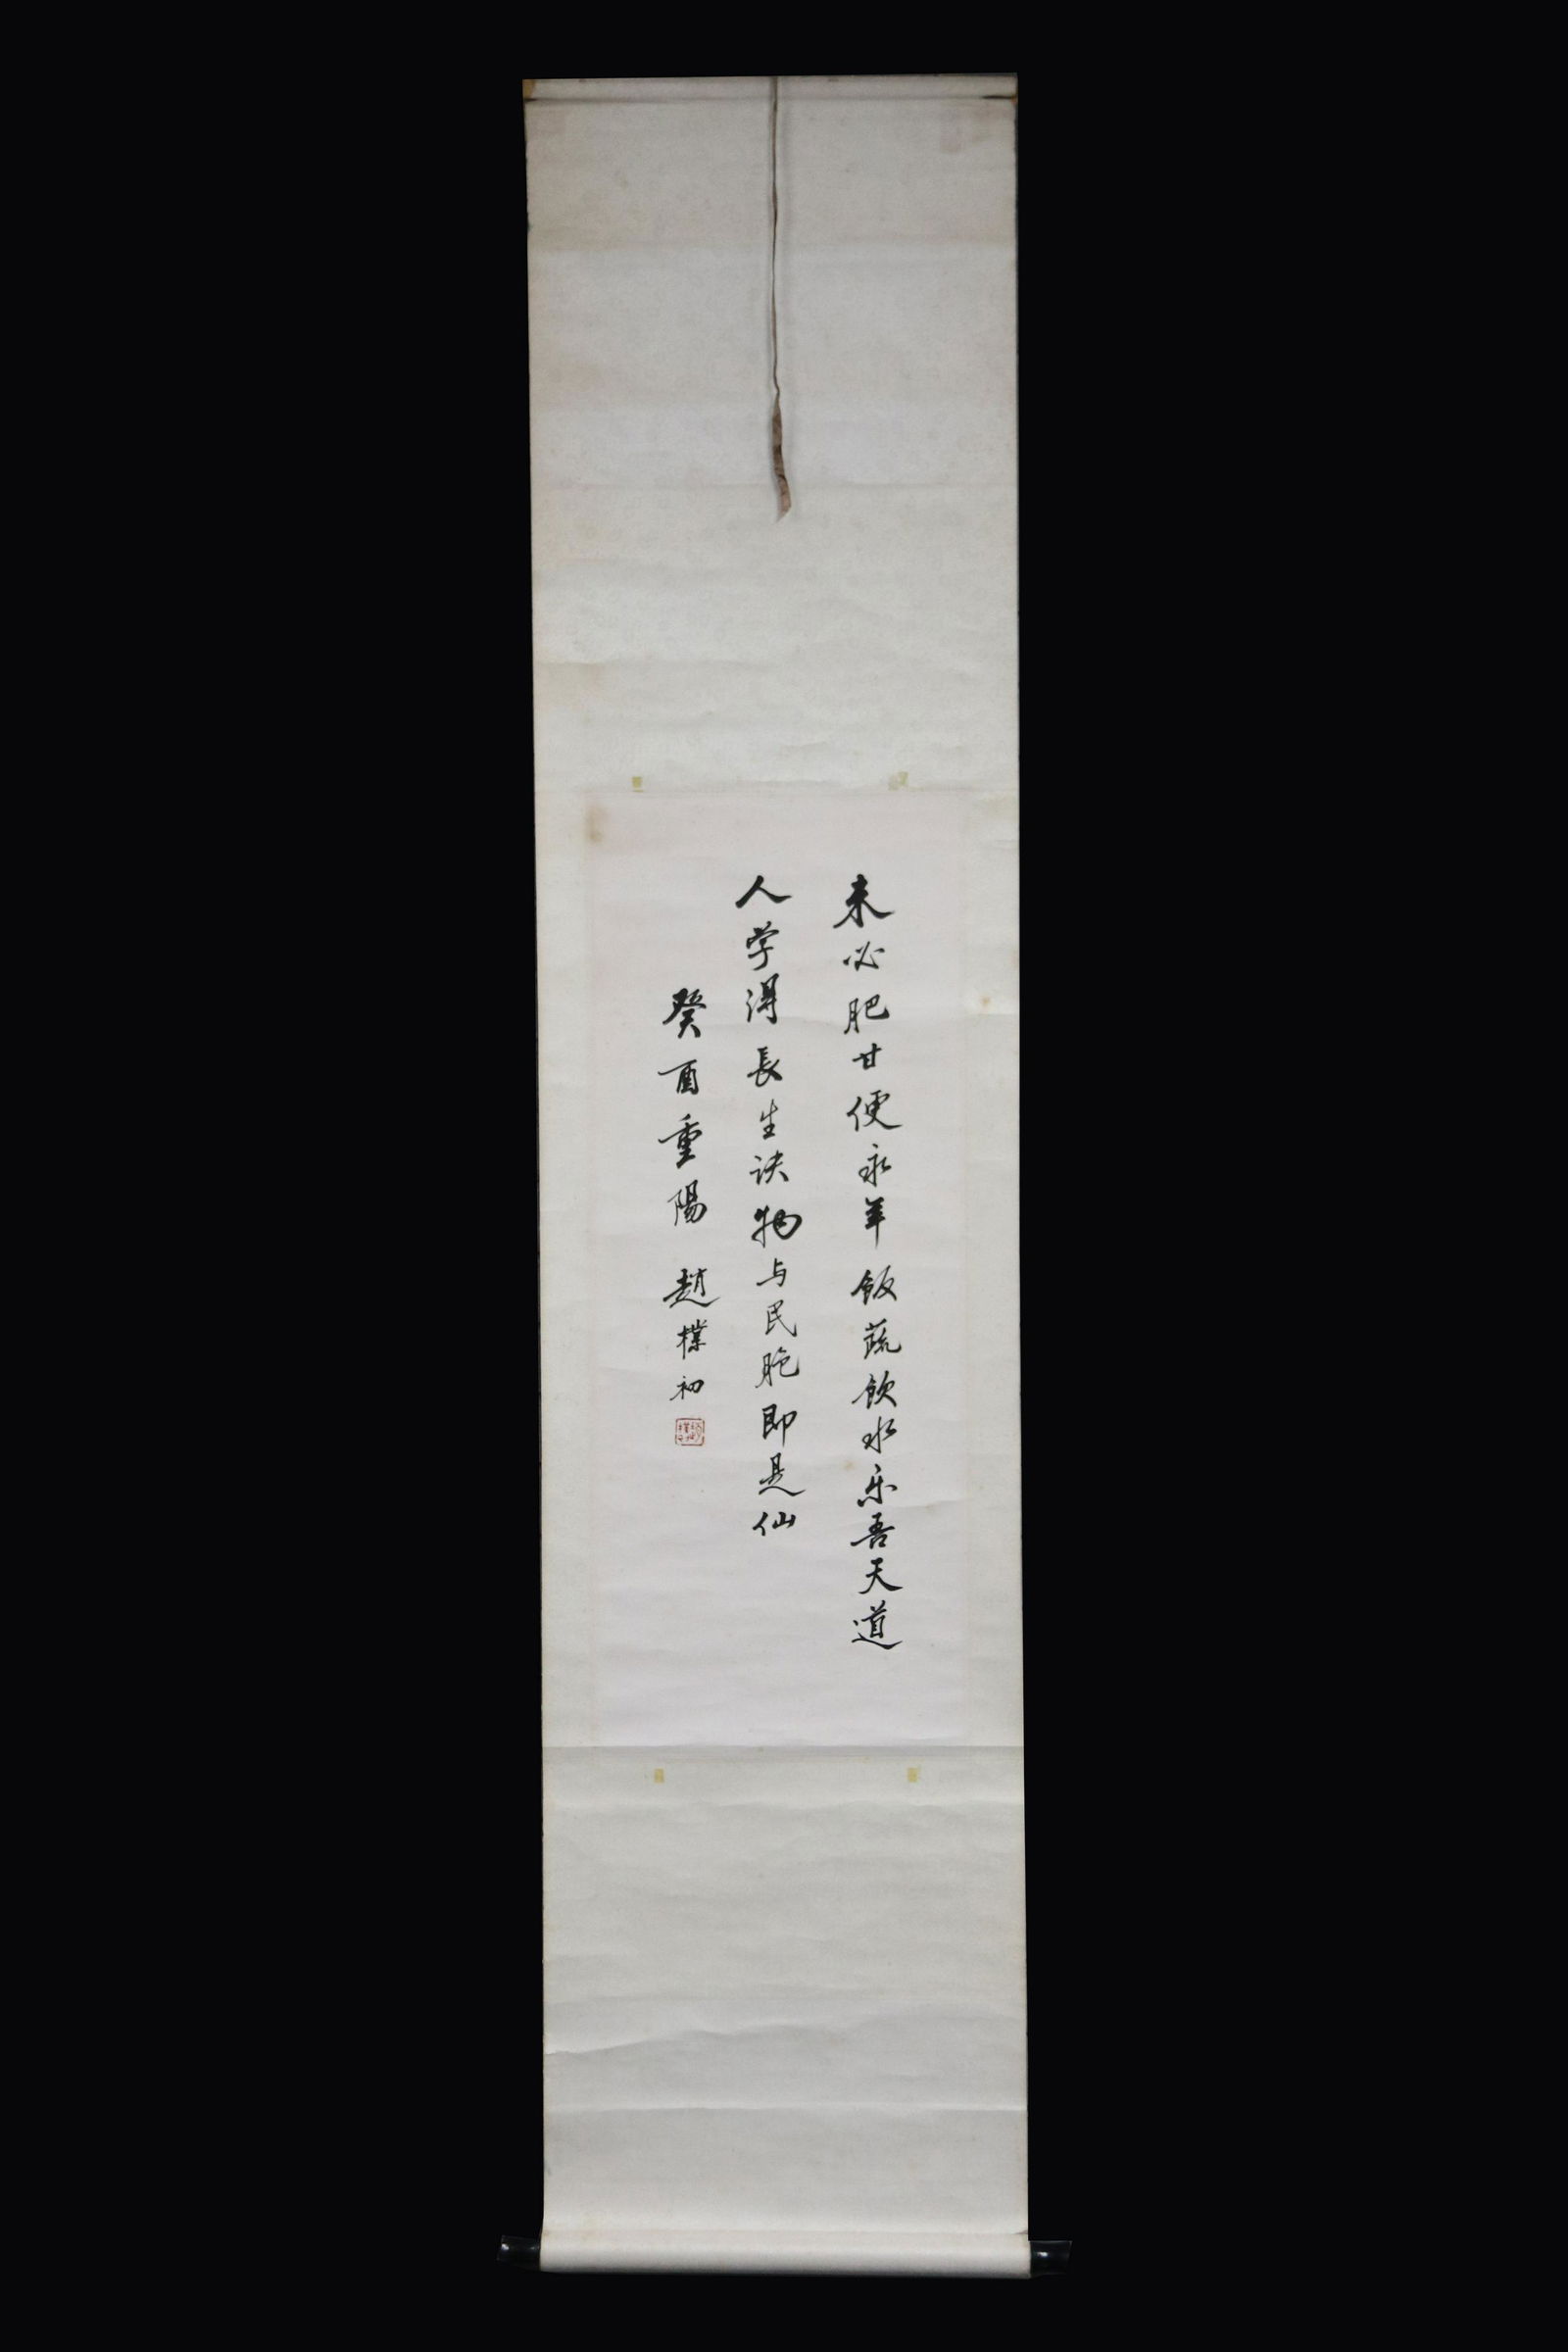 未必肥甘便永年飯蔬飲水乐吾天道
人学得長生诀物与民胞即是仙
癸酉重陽 趙樸初